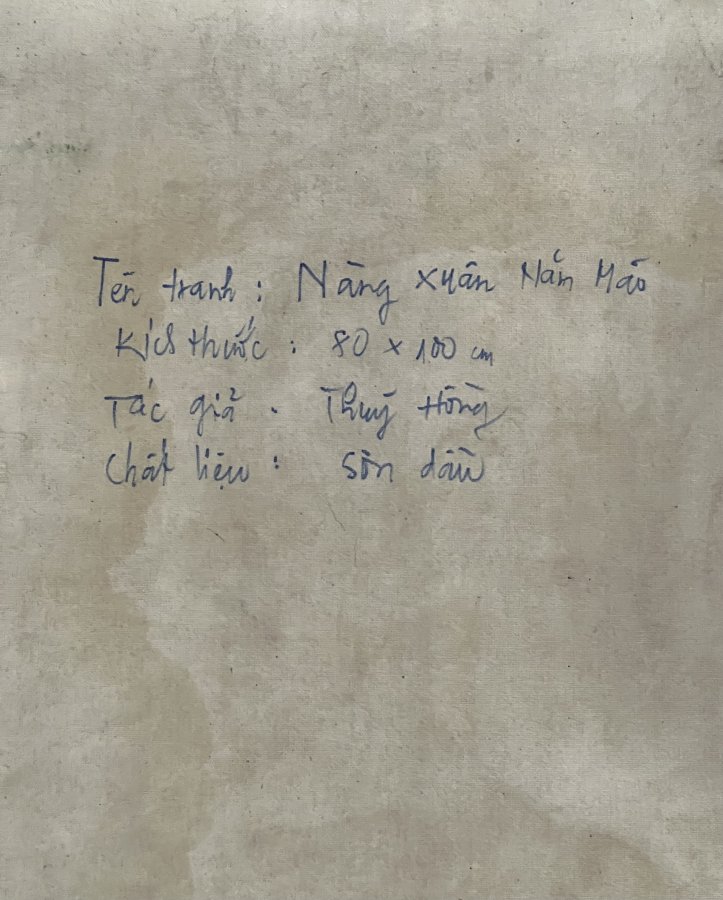 Tên tranh : Nàng xuân Nắm Mão
Kích thước : 80 x 100 cm
Tác giả . Thuý Hồng
Chất liệu : Sơn dầu